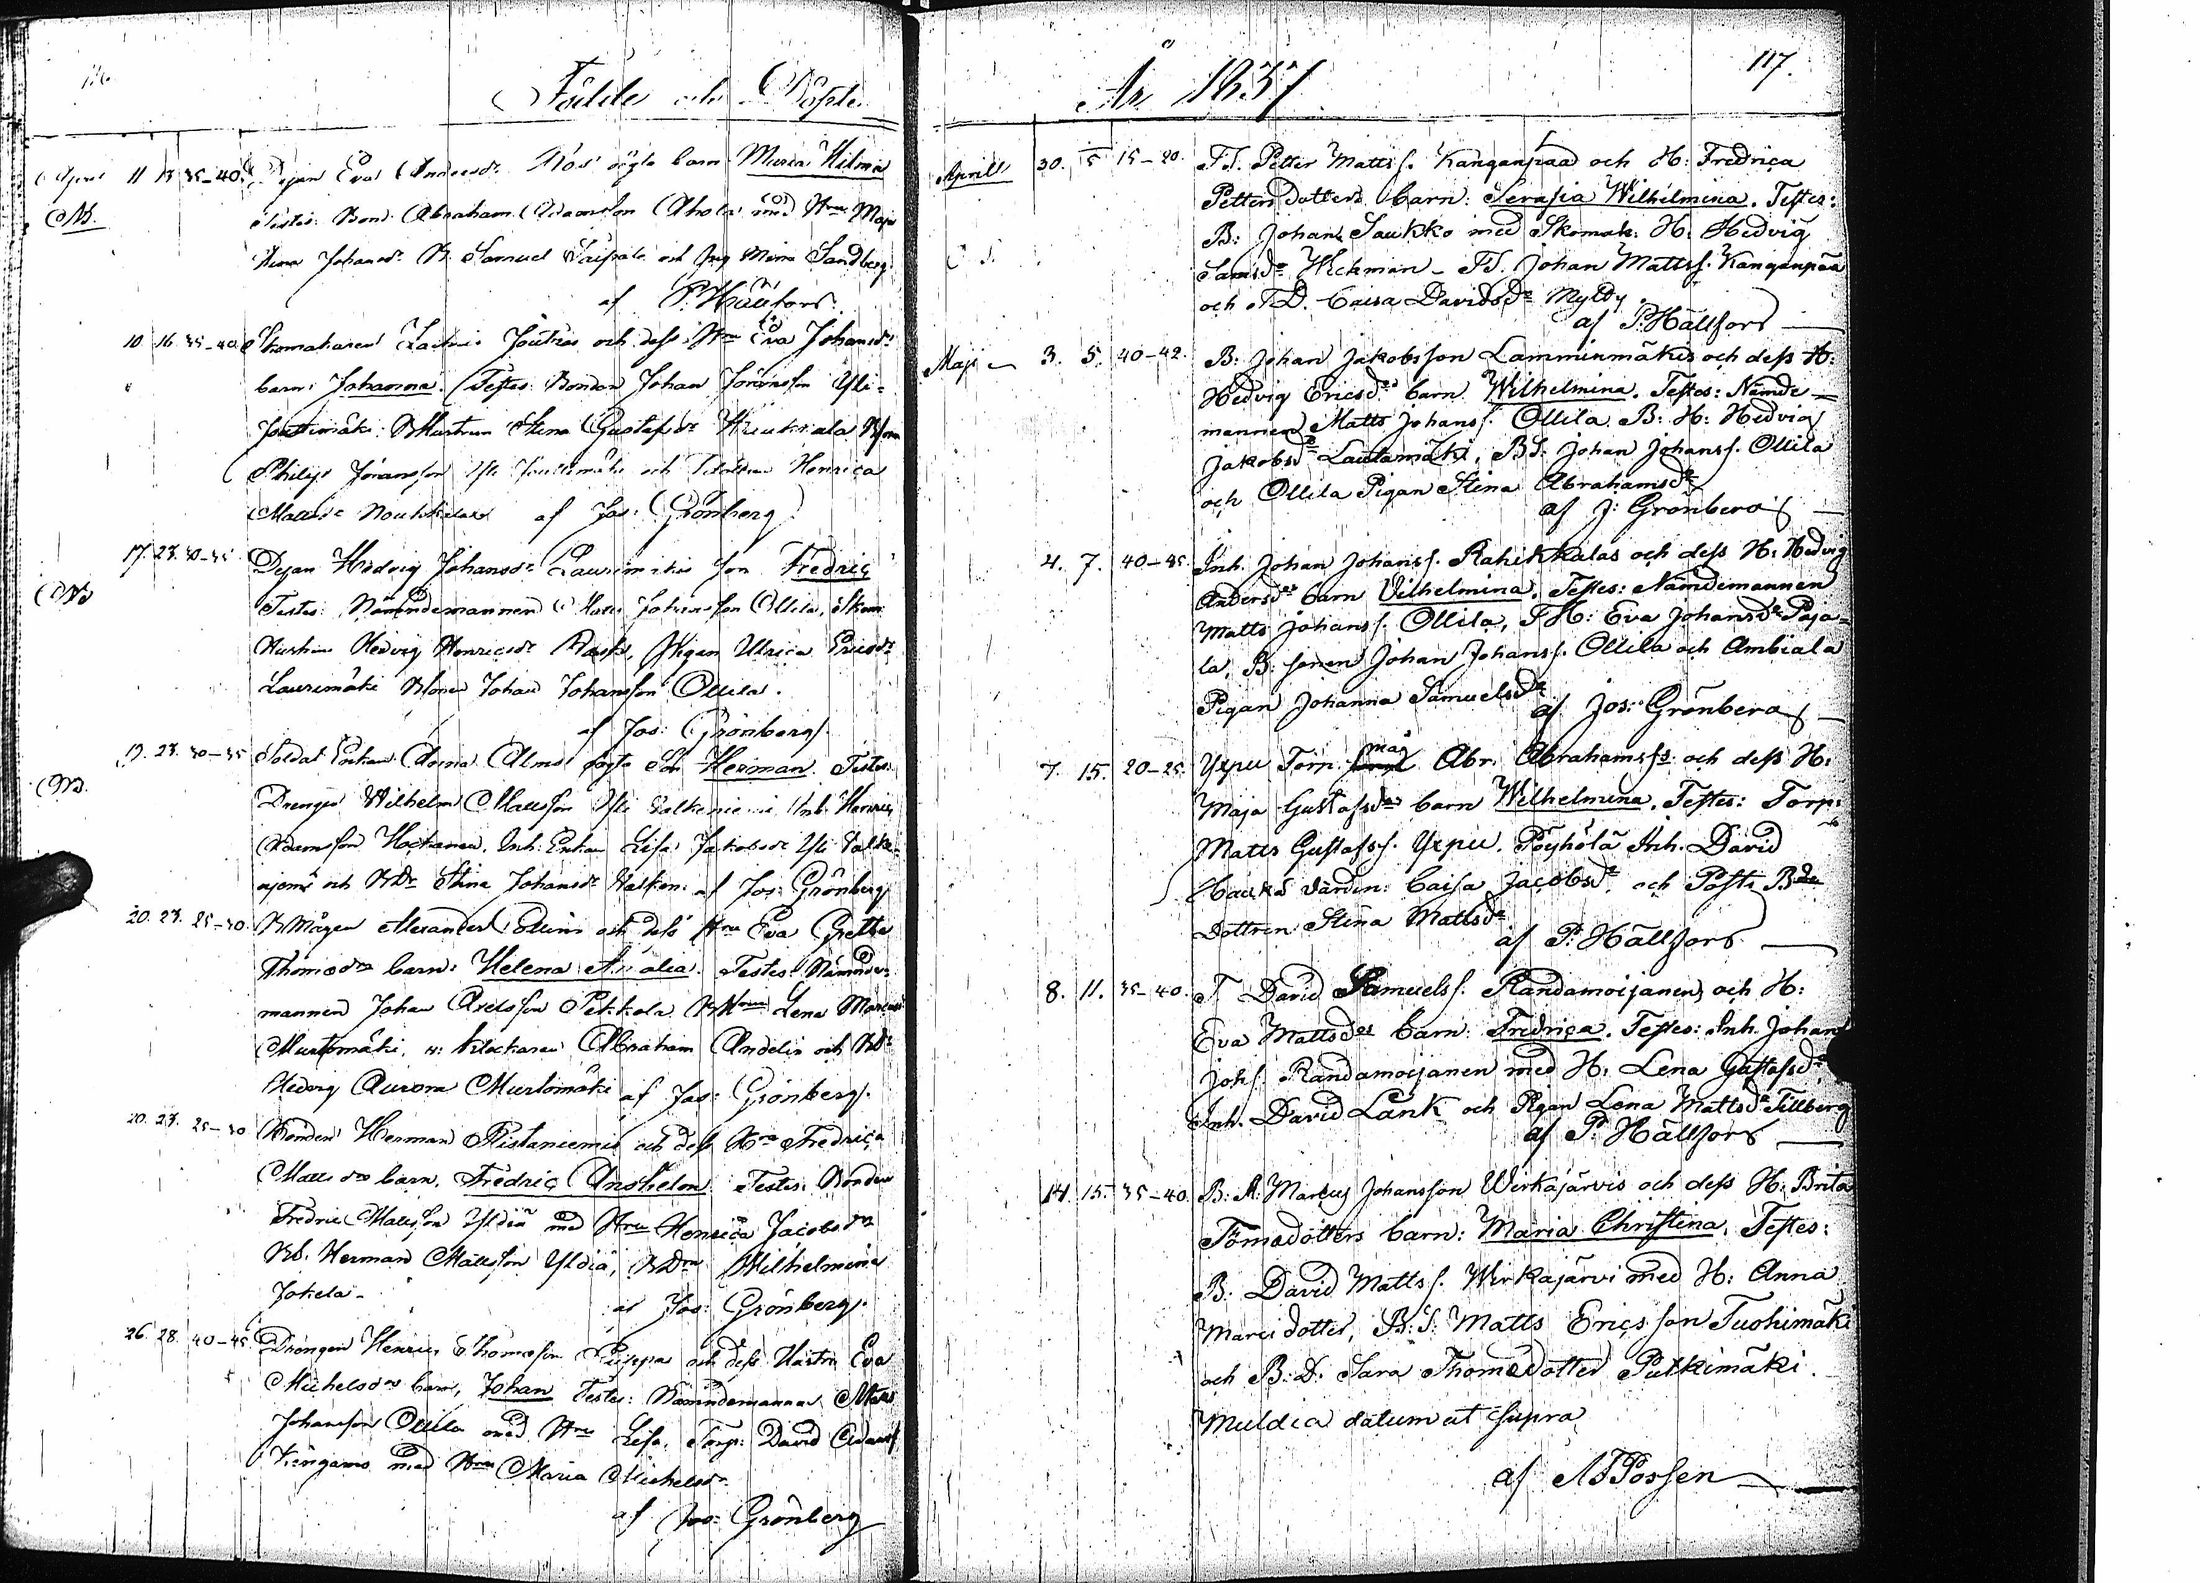 116.
Födde och Döpte
April 11 13 35-40. Pigan Eva Andersdr Röös' oägta barn Maria Hilma
Testes: Bond. Abraham Adamsson Ahola med Hru Maja
Stina Johansdr B. Samuel Saispala och Jug Mina Sandberg
af P. Hällfors.
10 16 35-40 Skomakaren Zachris Joutkas och dess Hru Eva Johansdrs
barn: Johanna. Testes: Bonden Johan Jöransson Yli-
Joutsimäki BHustrun Stina Gustafsdr Heickkala Bson
Philip Jöransson Yli Joutsimäki och Henrica
Mattsdr Noukkala af Jos: Grönberg
17. 23. 30-35. Pigan Hedvig Johansdr Laurimäkis son Fredric
Testes: Nämndemannen Matts Johansson Ollila, Skom:
Hustrun Hedvig Henricsdr Rask, Pigan Ulrica Ericsdr
Laurimäki BSonen Johan Johansson Ollila.
af Jos: Grönberg.
19. 23. 30-35 Soldat Enkan Anna Alms oägta Son Herman. Testes:
Drengen Wilhelm Mattsson Yli Valkeniemi Inh. Henric
Adamsson Hockanen. Inh. Enkan Lisa Jakobsdr Yli Valke-
njemi och BDr Stina Johansdr af Jos: Grönberg
20. 23. 25-30. BMågen Alexander Edvins och dess Hru Eva Gretha
Thomasdrs barn: Helena Amalia. Testes: Nämnde-
mannen Johan Axelsson Pekkola BHrun Lena Marcusdr
Murtomäki, Klockaren Abraham Andelin och BDr
Hedvig Aurora Murtomäki af Jos: Grönberg.
20. 23. 25-30 Bonden Herman Ristaniemis och dess Hru Fredrica
Mattsdrs barn, Fredric Anshelm. Testes: Bonden
Fredric Mattsson Yldiä med Hru Henrica Jacobsdr
BS. Herman Mattsson Yldiä, BDrn Wilhelmina
Jokela- af Jos: Grönberg.
26. 28. 40-45 Drängen Henric Thomasson Piispas och dess Hustru Eva
Michelsdrs barn, Johan Testes: Nämndemannen Matts
Johansson Ollila med Hru Lisa. Torp: David Adamss.
Kängams med Hru Maria Michelsdr.
af Jos: Grönberg
År 1837. 117.
April 30. 5 15-20. TS. Petter Mattss. Kanganpää och H: Fredrica
Petters dotters barn: Serafia Wilhelmina. Testes:
B: Johan Saukko med Skomak. H: Hedvig
Samsdr Wickman - TS. Johan Mattss. Kanganpää
och TD. Caisa Davidsdr Mylly.
af P. Hällfors
Maji 3. 5. 40-42. B. Johan Jakobsson Lamminmäkis och dess H:
Hedvig Ericsdrs barn Wilhelmina. Testes: Nämde-
mannen Matts Johanss. Ollila. B: H: Hedvig
Jakobsdr Lautamäki, BS: Johan Johanss. Ollila
och Ollila Pigan Stina Abrahamsdr
af J: Grönberg
4. 7. 40-45. Inh. Johan Johanss. Rahikkalas och dess H: Hedvig
Andersdrs barn Vilhelmina. Testes: Nämdemannen
Matts Johanss. Ollila, TH: Eva Johansdr Paja-
la, B. sonen Johan Johanss. Ollila och Ambiala
Pigan Johanna Samuelsdr
af Jos: Grönberg
7. 15. 20-25. Yxpu Torp. måg Abr. Abrahamss: och dess H:
Maja Gustafsdrs barn Wilhelmina. Testes: Torp:
Matts Gustafss. Yxpu. Pöyhölä Inh. David
Hauka värdin: Caisa Jacobsdr och Posti Bde
Dottren Stina Mattsdr
af P: Hällfors
8. 11. 35-40. T. David Samuelss. Randamoijanens och H:
Eva Mattsdrs barn: Fredrica. Testes: Inh. Johan
Johs. Randamoijanen med H: Lena Gustafsdr,
Inh. David Länk och Pigan Lena Mattsdr Tillberg
af P: Hällfors
14. 15. 35-40. B: M: Marcus Johansson Wirkajärvis och dess H: Brita
Tomædotters barn: Maria Christina. Testes:
B. David Mattss. Wirkajärvi med H: Anna
Marci dotter, B: S: Matts Ericsson Tuohimäki
och B: D: Sara Thomædotter Putkimäki.
Muldia datum ut supra
af M T Possen